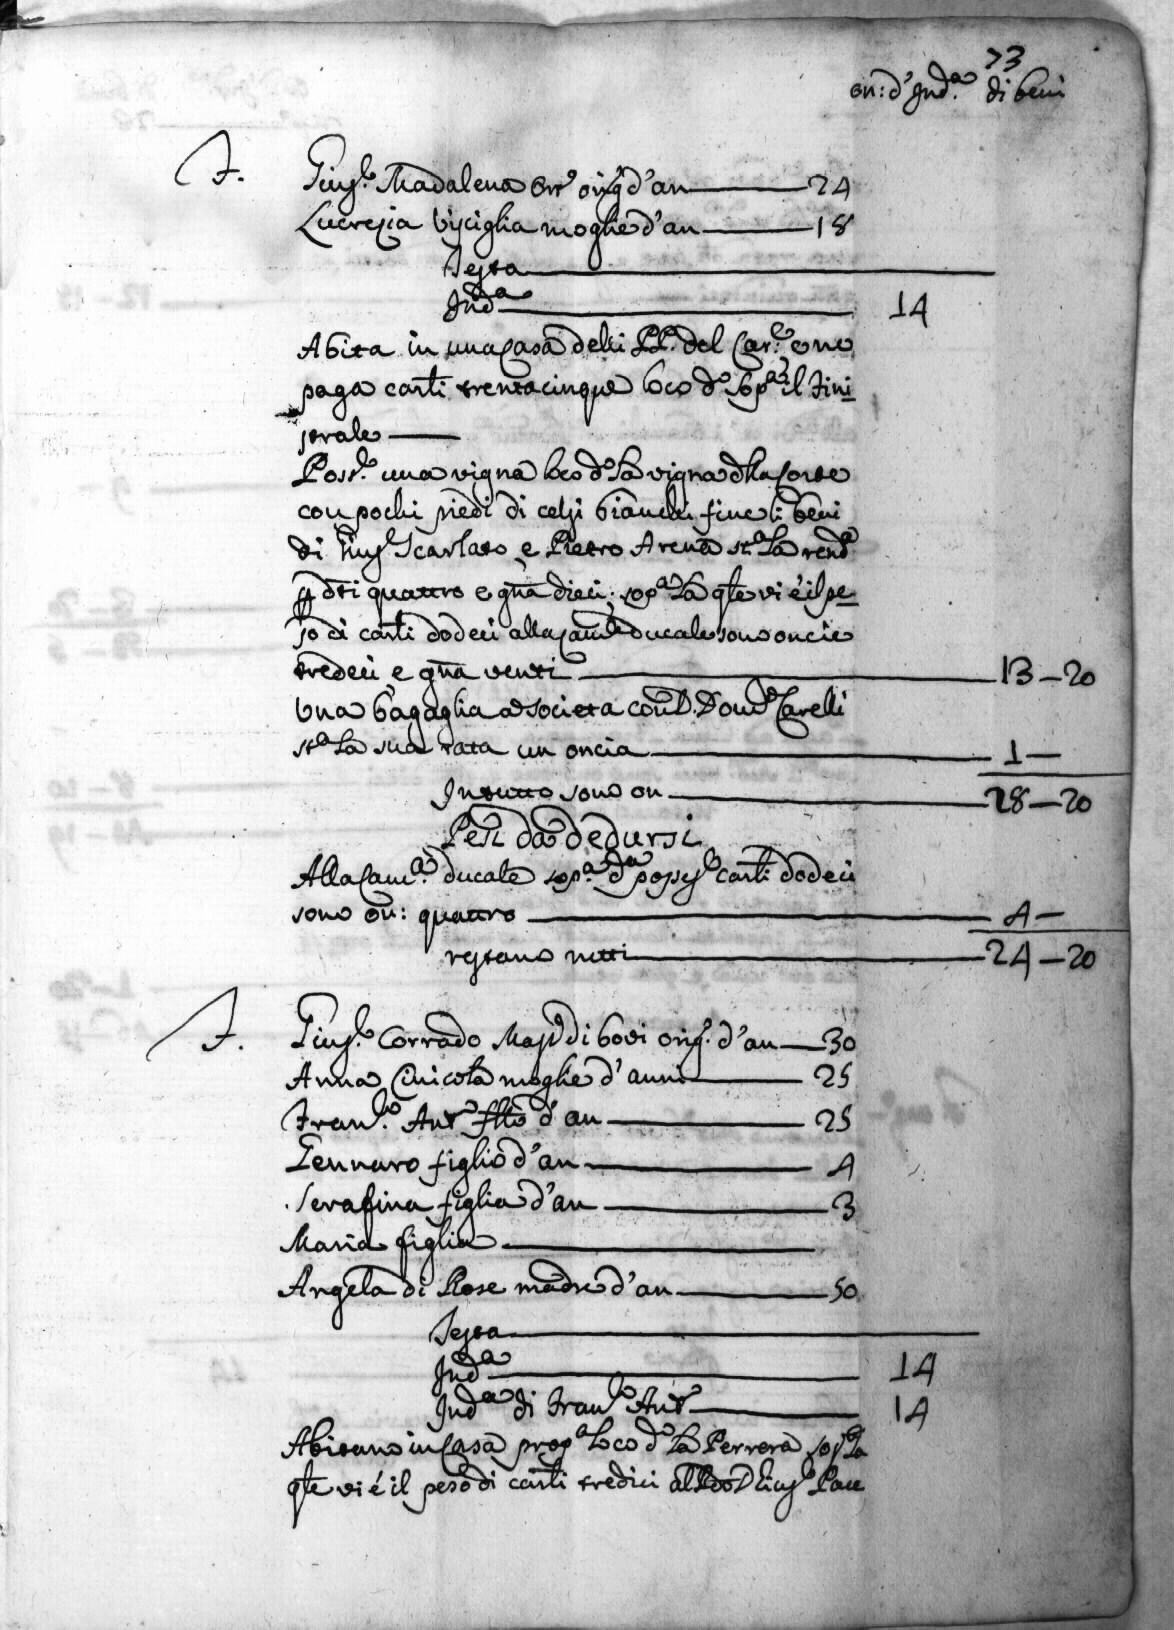 73
on: d'Ind.a di beni
F. Gius.e Madalena orig.o d'an 24
Lucrezia Visciglia moglie d'an 18
Testa
Ind.a 14
Abita in una casa delli PP. del Car.e e ne
paga carli trentacinque loco d.o sop.a il Fini
strale
Poss.e una vigna loco d.o la vigna dlla Corte
con pochi piedi di celzi bianchi fine li beni
di Gius.e Scarlato, e Pietro Arena st.a la rend.a
p dti quattro e gna dieci; sop.a la qle vi è il pe
so di carli dodeci alla cam.a ducale sono oncie
tredeci e gna venti 13-20
Una bagaglia a società con D. Dom.co Carelli
st.a la sua rata un oncia 1-
In tutto sono on 28-20
Pesi da dedursi
Alla Cam.a ducale sop.a d.a poss.e carli dodeci
sono on: quattro 4-
restano netti 24-20
F. Gius.e Corrado di bovi orig.o d'an 30
Anna Cinicola moglie d'anni 25
Fran.co Ant.o fllo d'an 25
Gennaro figlio d'an 4
Serafina figlia d'an 3
Maria figlia
Angela di Rose madre d'an 50
Testa
Ind.a 14
Ind.a di Fran.co Ant.o 14
Abitano in casa prop.a loco d.o la Perrera sop.a la
qle vi è il peso di carli tredici al D Gius.e Pace